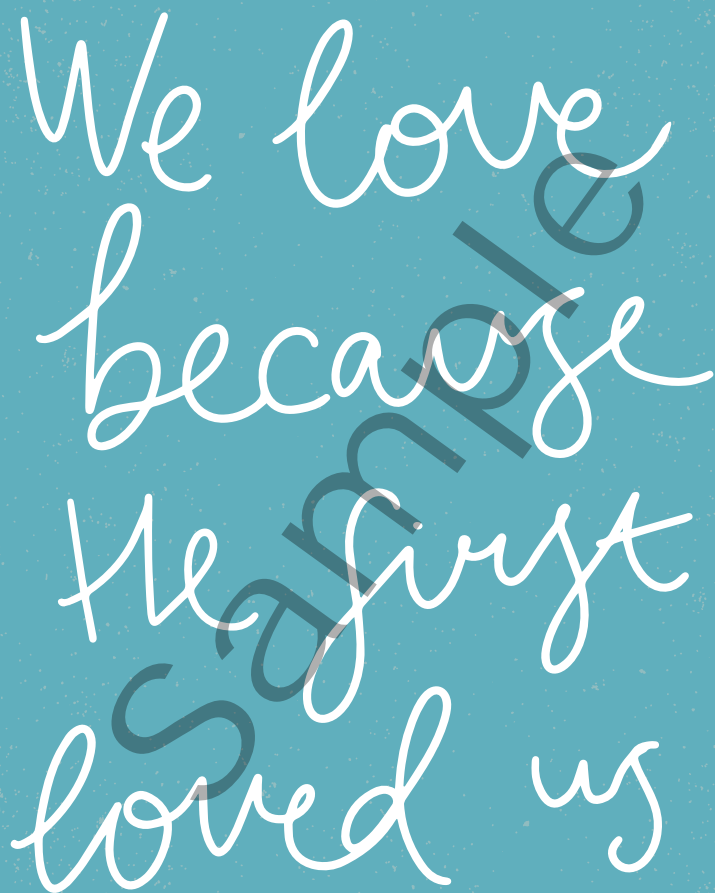 We love
because
He first
loved us
Sample